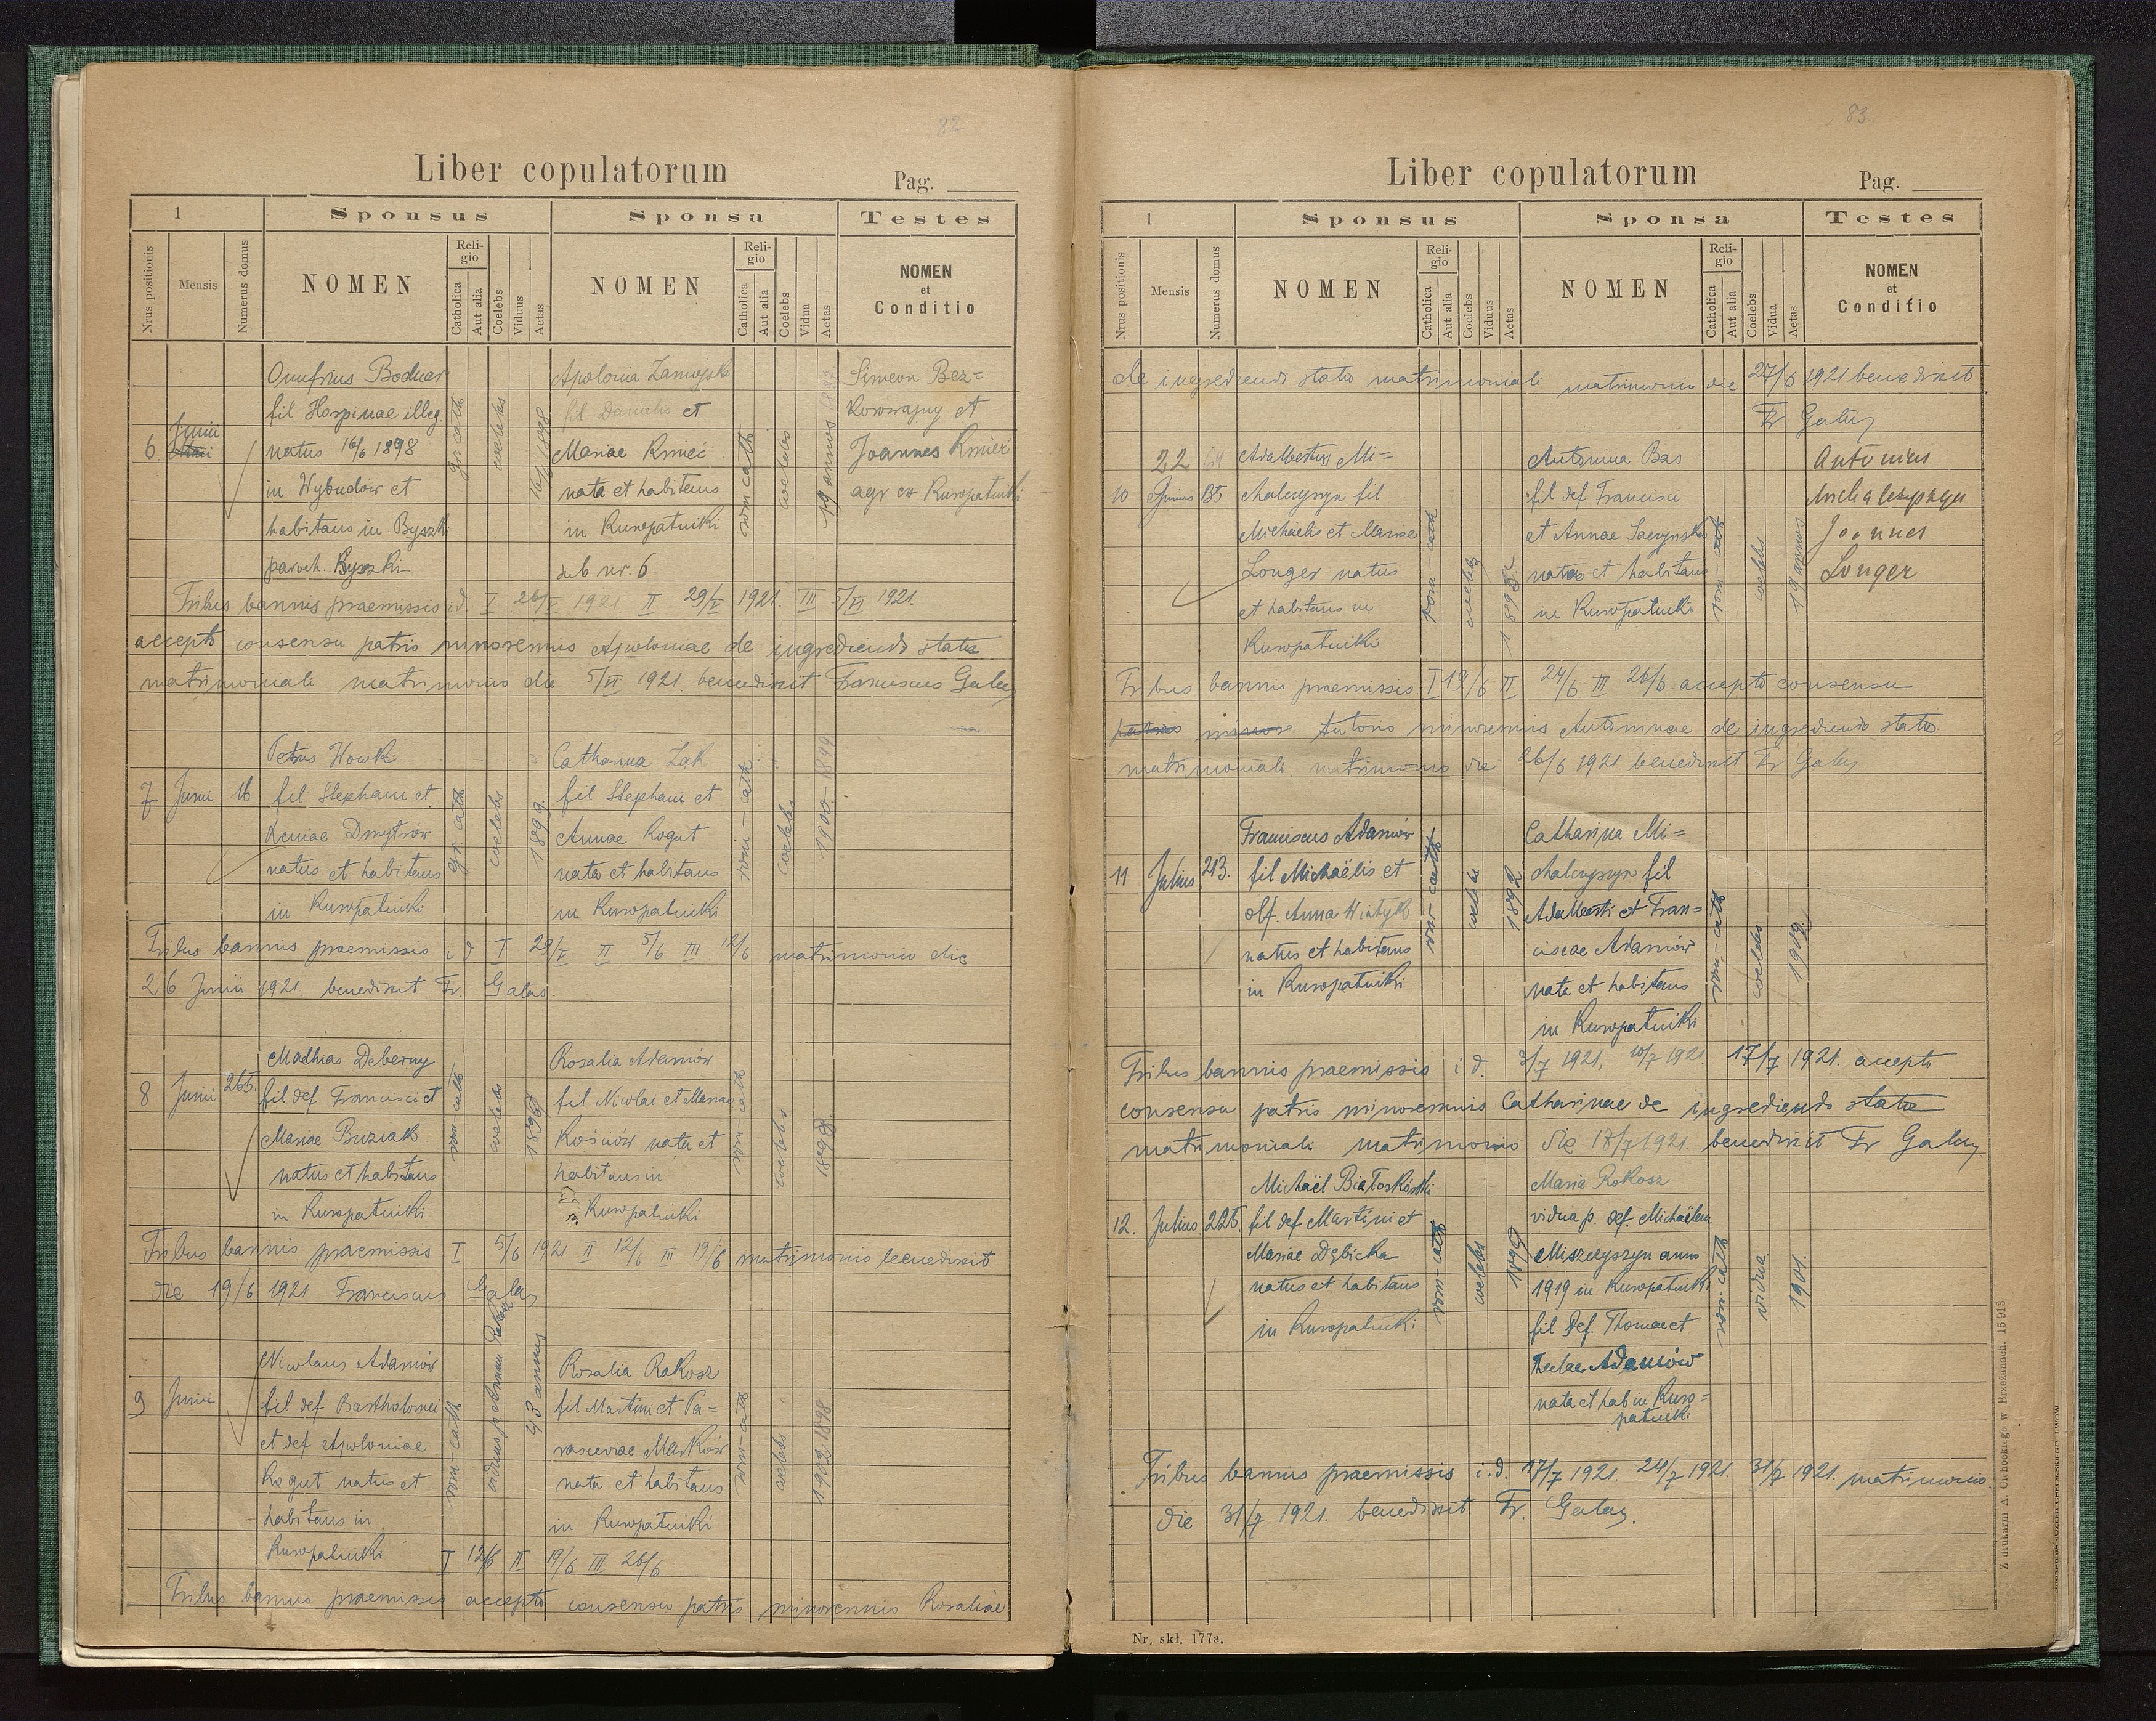 82
Liber copulatorum
Pag.
1
Sponsus
Sponsa
Testes
Nrus positionis
Mensis
Numerus domus
NOMEN
Religio
Catholica
Aut alia
Coelebs
Viduus
Aetas
NOMEN
Religio
Catholica
Aut alia
Coelebs
Vidua
Aetas
NOMEN
et
Conditio
Onufrius Bodnar
fil Hospinae illeg.
6 Junii natus 16/6 1898
in Wybudów et
habitans in Byszki
paroch. Byszki
gr. cath
coelebs
16/6 1898
Apolonia Zamojska
fil Danielis et
Mariae Kmieć
nata et habitans
in Kuropatniki
sub nr. 6
rom cath
coelebs
19 annos
Simeon Bez=
Korowajny et
Joannes Kmieć
agr ex Kuropatniki
Tribus bannis praemissis i.d. I 26/V 1921 II 29/V 1921. III 5/VI 1921.
accepto consensu patris minorennis Apoloniae de ingrediendo statu
matrimoniali matrimonio die 5/VI 1921 benedixit Franciscus Galas
7 Junii 16
Petrus Howk
fil Stephani et
Xeniae Dmytrów
natus et habitans
in Kuropatniki
gr. cath
coelebs
1899.
Catharina Żak
fil Stephani et
Annae Rogut
nata et habitans
in Kuropatniki
rom-cath
coelebs
1900 1899
Tribus bannis praemissis i d I 29/V II 5/6 III 12/6 matrimonio die
26 Junii 1921. benedixit Fr. Galas.
8 Junii 255.
Mathias Deberny
fil def Francisci et
Mariae Buziak
natus et habitans
in Kuropatniki
rom-cath
coelebs
Rosalia Adamów
fil Nicolai et Mariae
Kośców nata et
habitans in
Kuropatniki
rom-cath
coelebs
1898
Tribus bannis praemissis I 5/6 1921 II 12/6 III 19/6 matrimonio benedixit
die 19/6 1921 Franciscus Galas
9 Junii
Nicolaus Adamów
fil def Bartholomei
et def Apoloniae
Rogut natus et
habitans in
Kuropatniki
rom-cath
viduus p. Annam
43 annus
Rosalia Rokosz
fil Martini et Pa=
rasceviae Marków
nata et habitans
in Kuropatniki
rom-cath
coelebs
1902 1898
I 12/6 II 19/6 III 26/6
Tribus bannis praemissis accepto consensu patris minorennis Rosaliae
83
Liber copulatorum
Pag.
1
Sponsus
Sponsa
Testes
Nrus positionis
Mensis
Numerus domus
NOMEN
Religio
Catholica
Aut alia
Coelebs
Viduus
Aetas
NOMEN
Religio
Catholica
Aut alia
Coelebs
Vidua
Aetas
NOMEN
et
Conditio
de ingrediendi statu matrimoniali matrimonio die 27/6 1921 benedixit
Fr Galas
22 64
10 Junius 135
Adalbertus Mi=
chalczyszyn fil
Michaelis et Mariae
Longer natus
et habitans in
Kuropatniki
rom-cath
coelebs
Antonina Bas
fil def Francisci
et Annae Saczyńska
nata et habitans
in Kuropatniki
rom-cath
coelebs
19 annos
Antonius
Michalczyszyn
Joannes
Longer
Tribus bannis praemissis I 19/6 II 24/6 III 26/6 accepto consensu
patris minore tutoris minorennis Antoninae de ingrediendo statu
matrimoniali matrimonio die 26/6 1921 benedixit Fr Galas
11 Julius 213.
Franciscus Adamów
fil Michaëlis et
def. Anna Wiatyk
natus et habitans
in Kuropatniki
rom-cath
coelebs
1892
Catharina Mi=
chalczyszyn fil
Adalberti et Fran=
ciscae Adamów
nata et habitans
in Kuropatniki
rom-cath
coelebs
1902
Tribus bannis praemissis i d. 3/7 1921, 10/7 1921 17/7 1921. accepto
consensu patris minorennis Catharinae de ingrediendo statu
matrimoniali matrimonio die 17/7 1921. benedixit Fr Galas
12. Julius 225
Michaël Białoskórski
fil def Martini et
Mariae Dębicka
natus et habitans
in Kuropatniki
rom-cath
coelebs
Maria Rokosz
vidua p. def. Michaëlem
Miszczyszyn anno
1919 in Kuropatniki
fil def. Thomae et
Theclae Adamów
nata et hab in Kuro=
patniki
rom-cath
vidua
1901.
Tribus bannis praemissis i.d. 17/7 1921. 24/7 1921. 31/7 1921. matrimonio
die 31/7 1921. benedixit Fr. Galas.
Nr. skł. 177a.